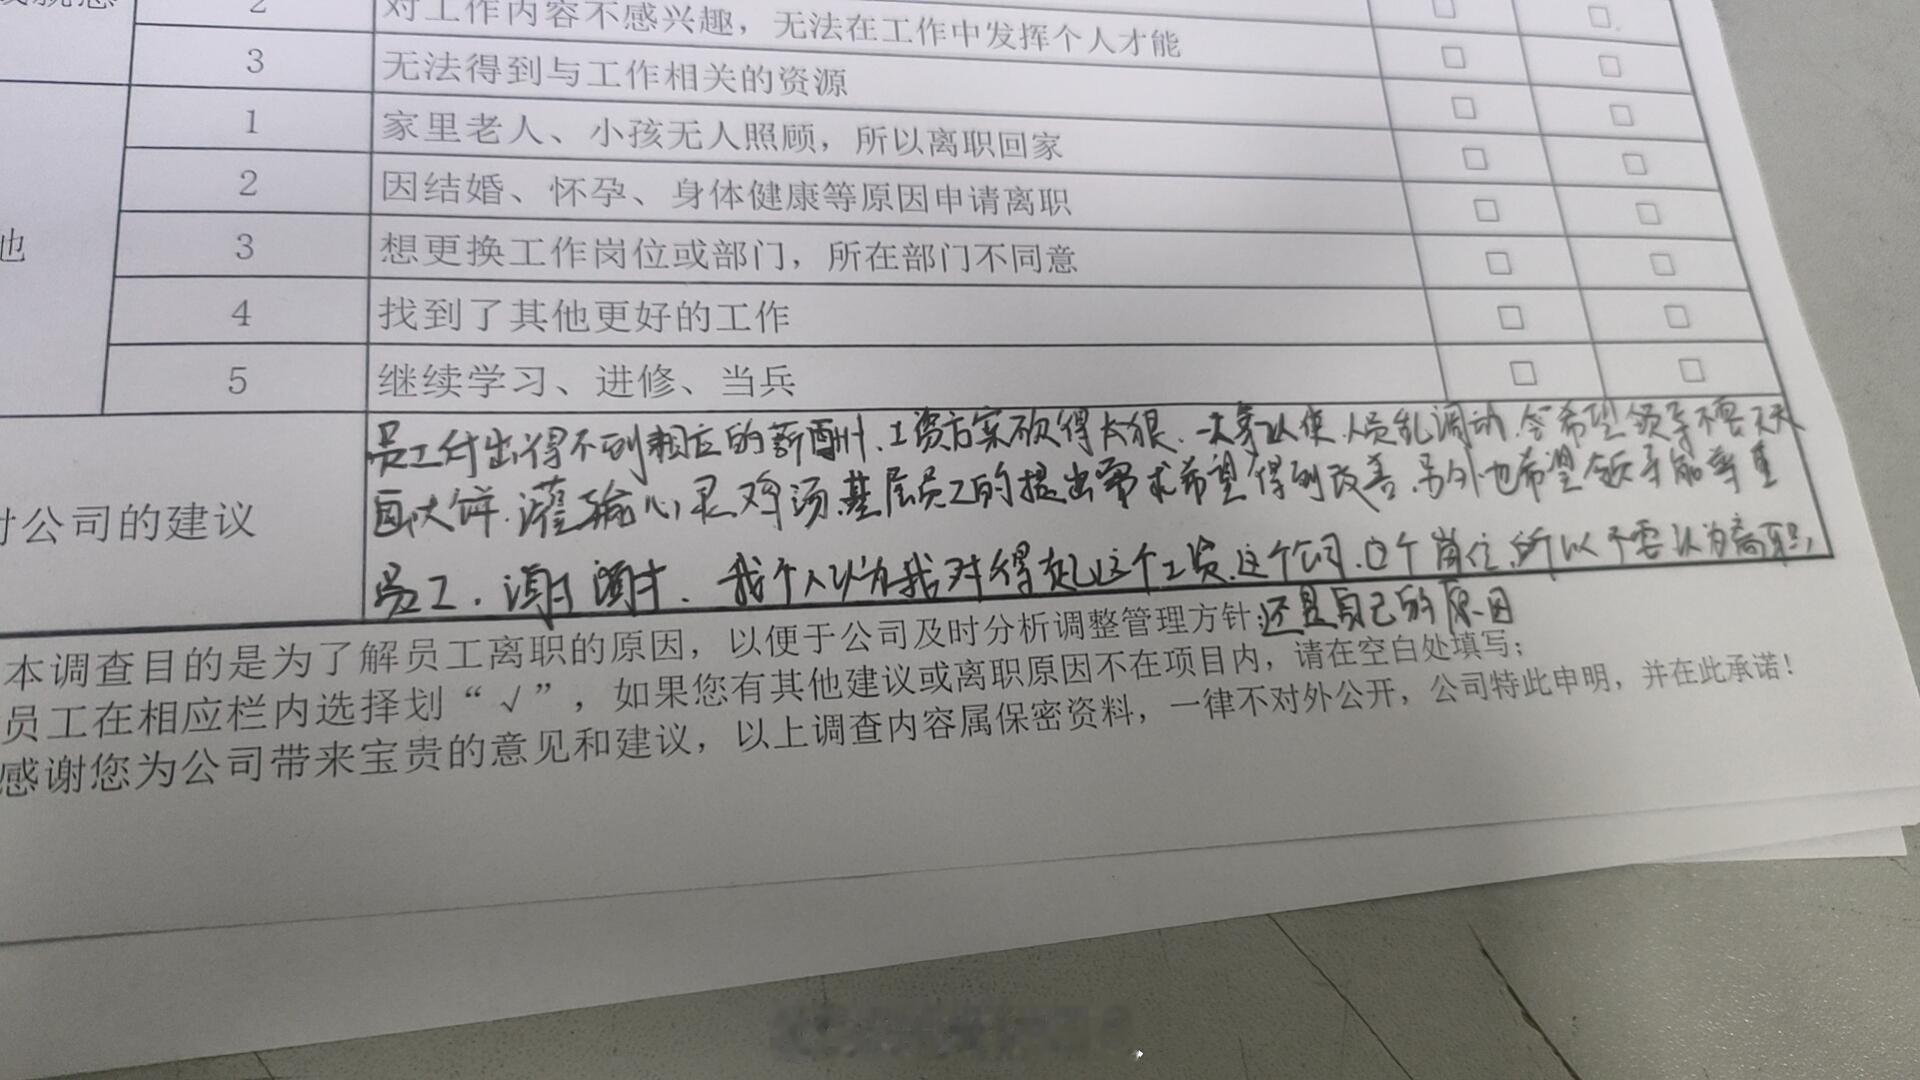 2 对工作内容不感兴趣，无法在工作中发挥个人才能 □ □
3 无法得到与工作相关的资源 □ □
1 家里老人、小孩无人照顾，所以离职回家 □ □
2 因结婚、怀孕、身体健康等原因申请离职 □ □
他
3 想更换工作岗位或部门，所在部门不同意 □ □
4 找到了其他更好的工作 □ □
5 继续学习、进修、当兵 □ □
对公司的建议
员工付出得不到相应的薪酬、工资方案砍得太狠、人员乱调动、希望领导不要天天
画大饼、灌输心灵鸡汤、基层员工的提出需求希望得到改善、另外也希望领导能尊重
员工、谢谢、我个人认为我对得起这个工资、这个公司、这个岗位、所以不要认为离职，
还是自己的原因
本调查目的是为了解员工离职的原因，以便于公司及时分析调整管理方针；
员工在相应栏内选择划“√”，如果您有其他建议或离职原因不在项目内，请在空白处填写；
感谢您为公司带来宝贵的意见和建议，以上调查内容属保密资料，一律不对外公开，公司特此申明，并在此承诺！